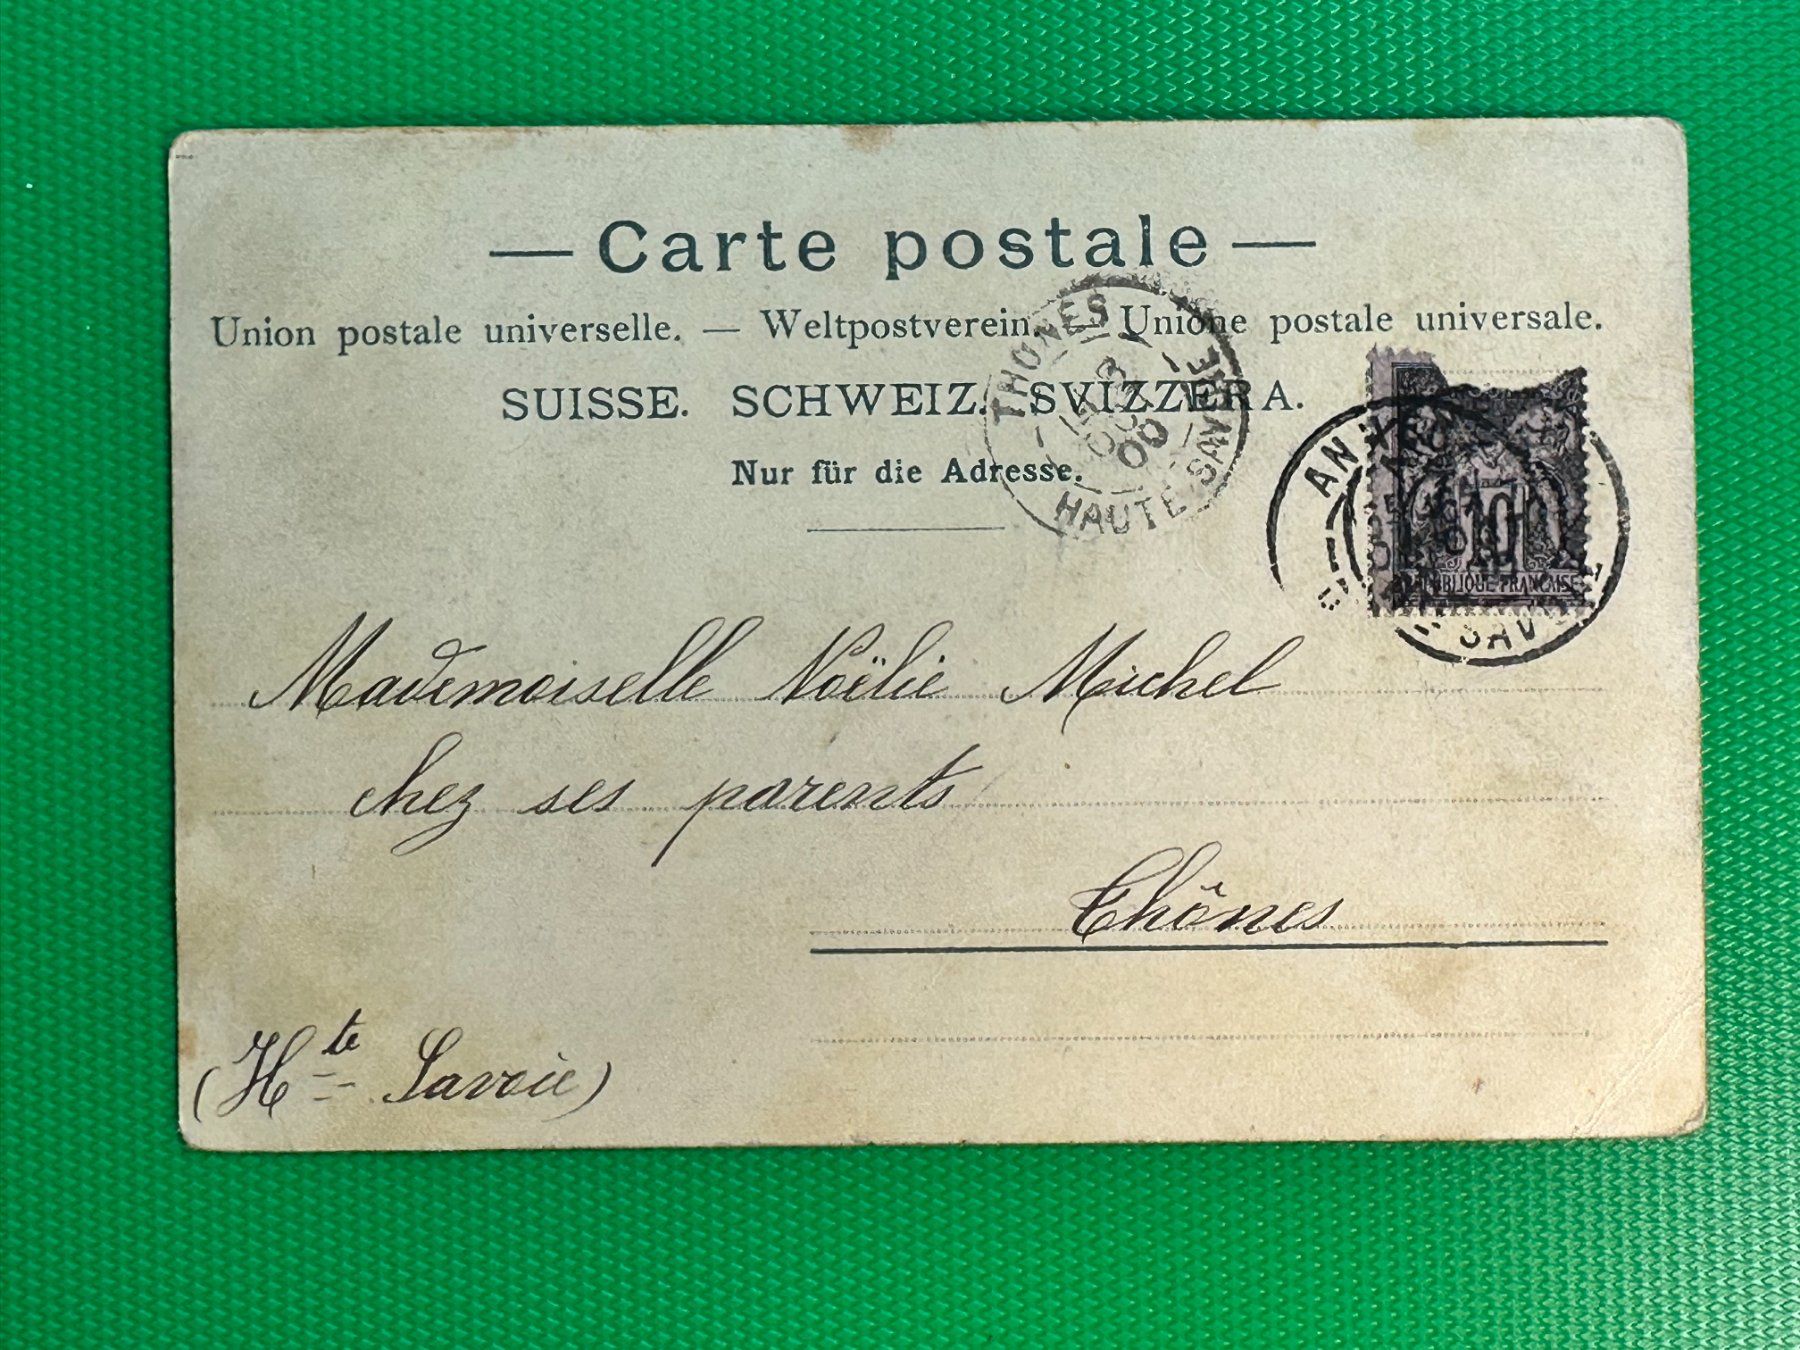 — Carte postale —
Union postale universelle. — Weltpostverein. — Unione postale universale.
SUISSE. SCHWEIZ. SVIZZERA.
Nur für die Adresse.
THONES
OCT
00
HAUTE-SAVOIE
10
REPUBLIQUE FRANCAISE
Mademoiselle Noëlie Michel
chez ses parents
Thônes
(Hte Savoie)